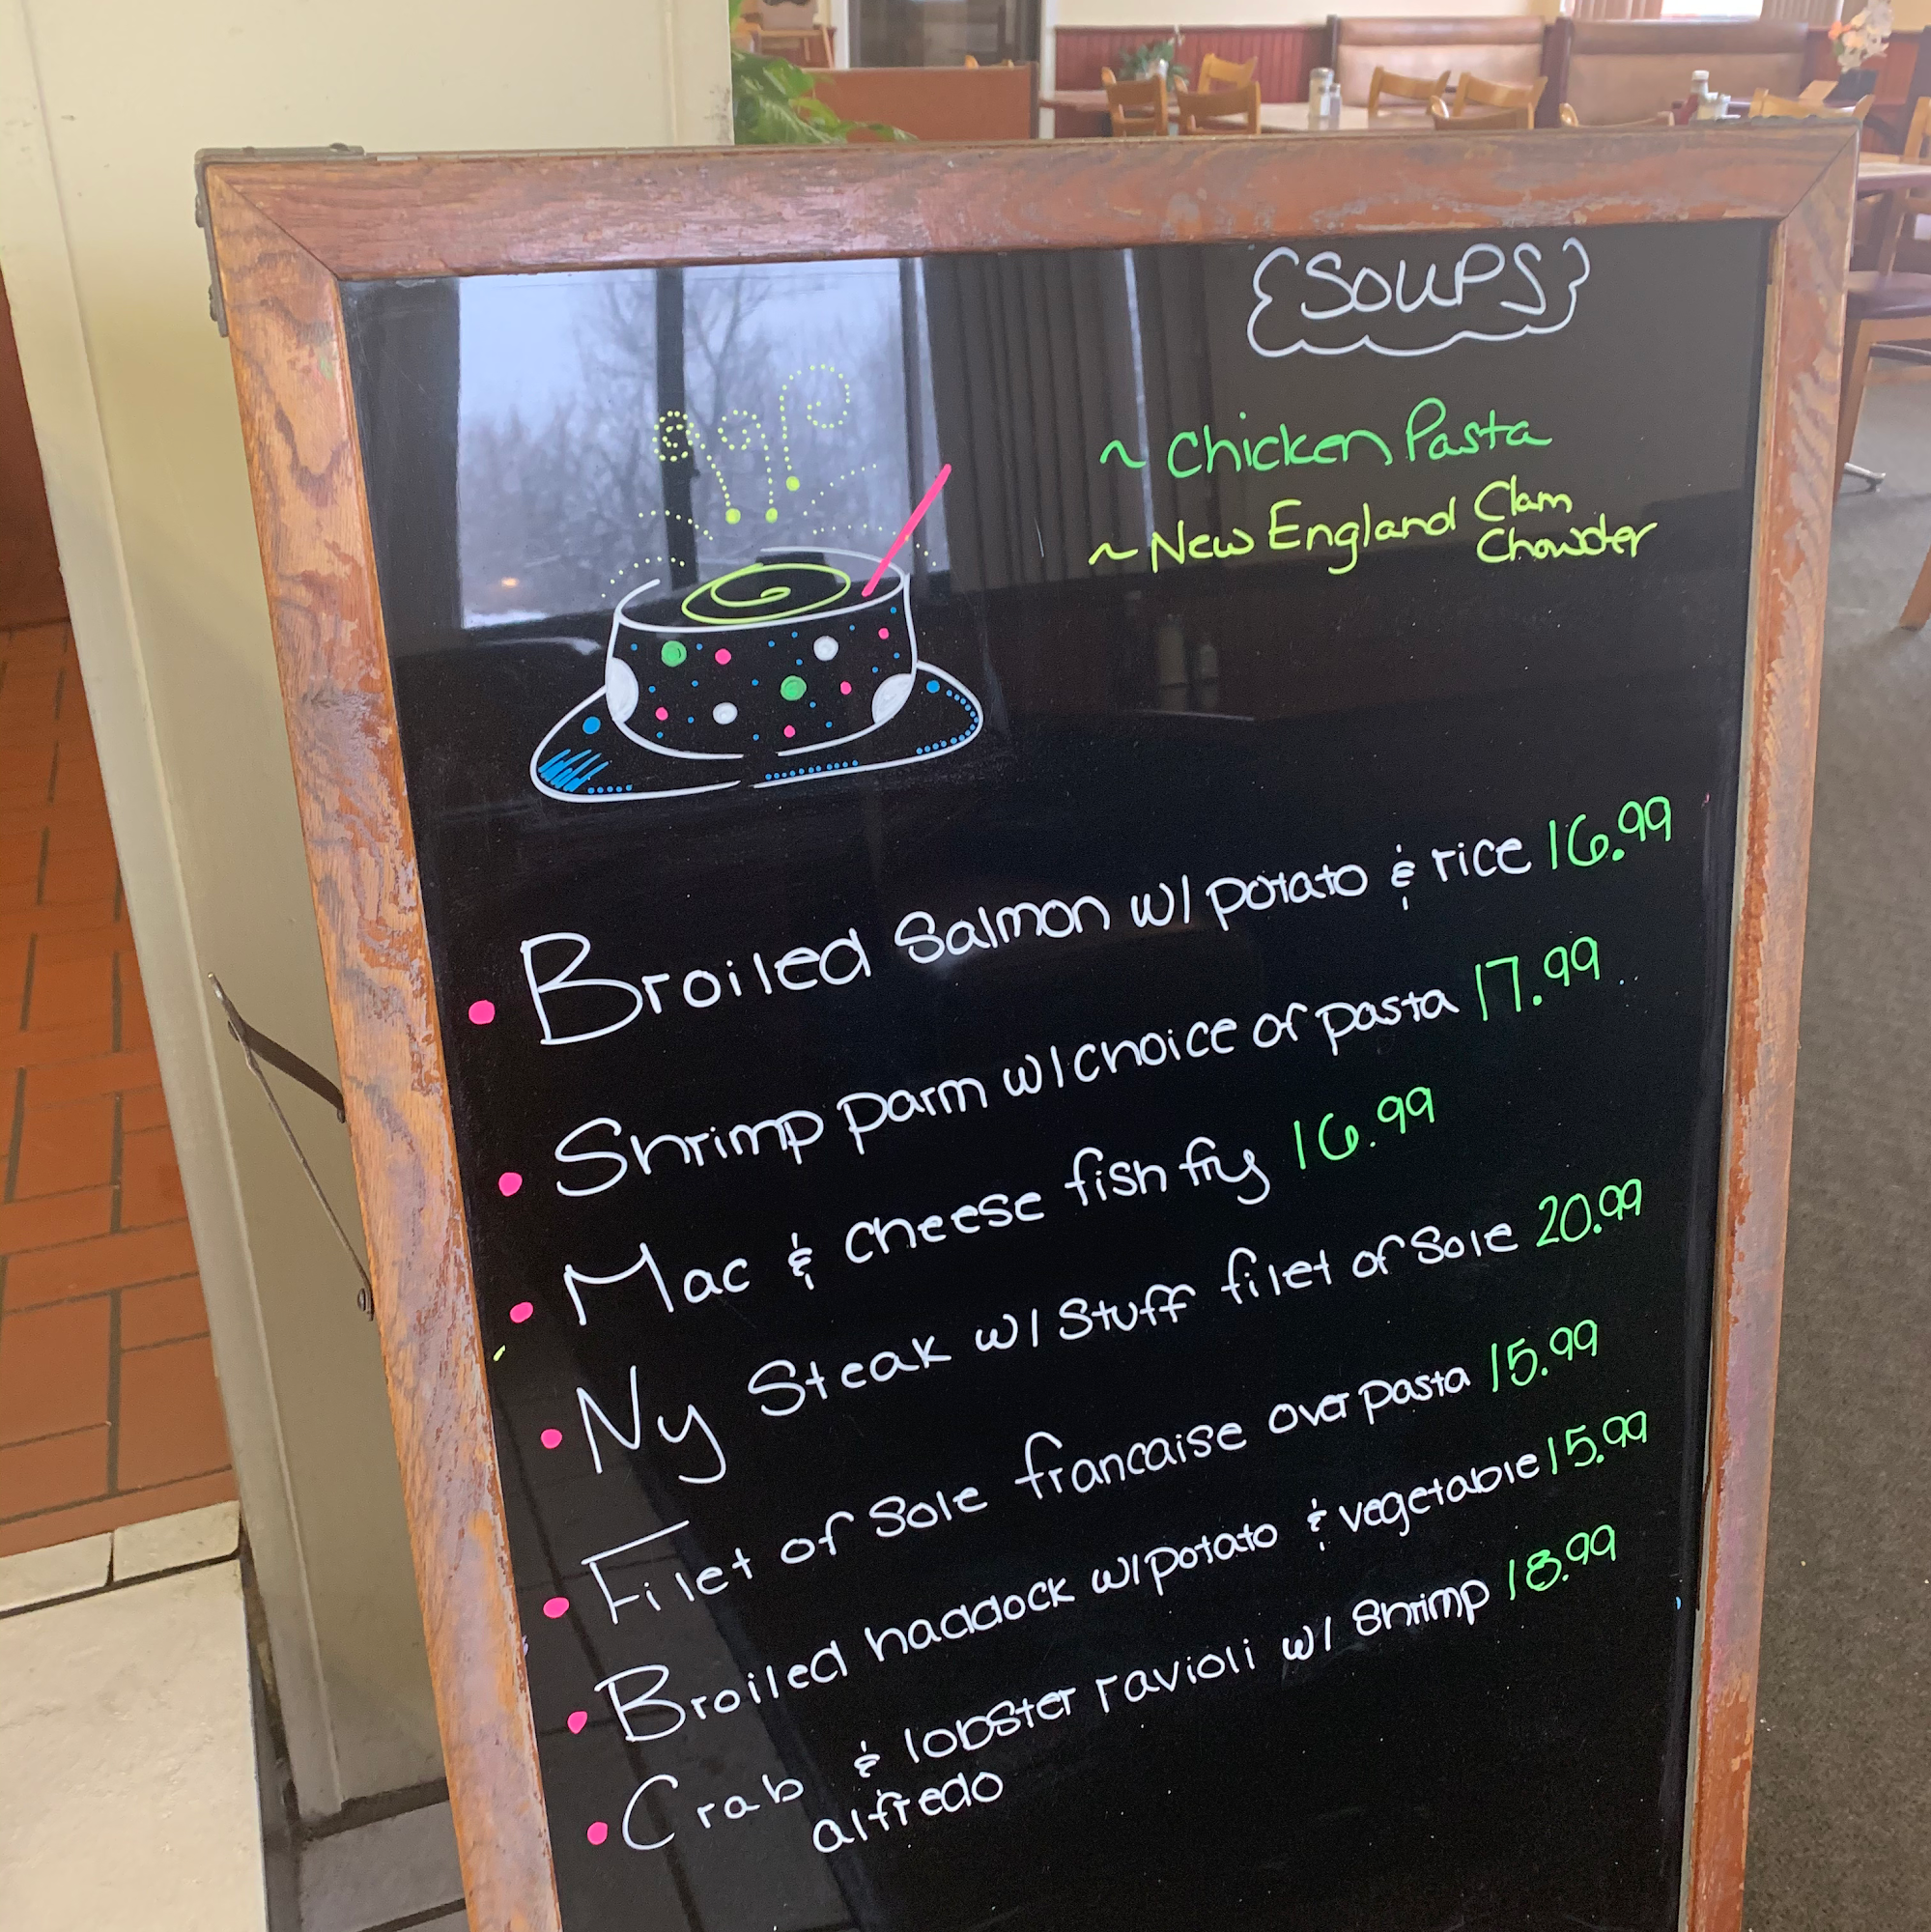 SOUPS
~ Chicken Pasta
~ New England Clam
Chowder
• Broiled Salmon w/ potato & rice 16.99
• Shrimp parm w/ choice of pasta 17.99
• Mac & cheese fish fry 16.99
• Ny Steak w/ Stuff filet of Sole 20.99
• Filet of Sole francaise over pasta 15.99
• Broiled haddock w/ potato & vegetable 15.99
• Crab & lobster ravioli w/ Shrimp 18.99
alfredo